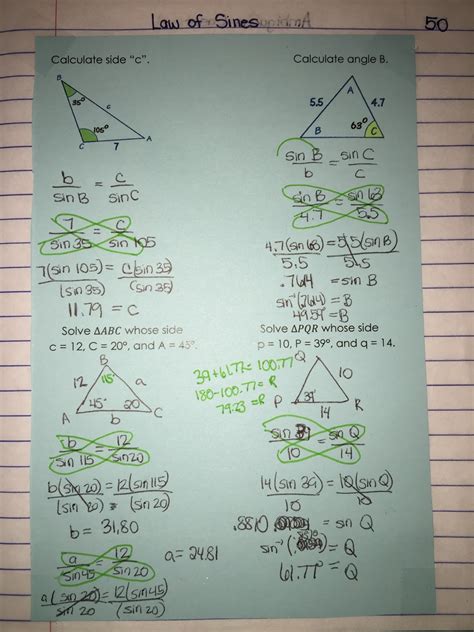 Law of Sines
50
Calculate side "c".
B
35°
c
105°
C
7
A
b/sin B = c/sin C
7/sin 35 = c/sin 105
7(sin 105)/(sin 35) = c(sin 35)/(sin 35)
11.79 = c
Calculate angle B.
A
5.5
4.7
B
63°
C
sin B/b = sin C/c
sin B/4.7 = sin 63/5.5
4.7(sin 63)/5.5 = 5.5(sin B)/5.5
.7614 = sin B
sin⁻¹(.7614) = B
49.59° = B
Solve ΔABC whose side
c = 12, C = 20°, and A = 45°.
B
115°
12
a
45°
20°
A
b
C
b/sin 115 = 12/sin 20
b(sin 20)/(sin 20) = 12(sin 115)/(sin 20)
b = 31.80
a/sin 45 = 12/sin 20
a = 24.81
a(sin 20)/sin 20 = 12(sin 115)/(sin 20)
Solve ΔPQR whose side
p = 10, P = 39°, and q = 14.
39 + 61.77 = 100.77
180 - 100.77 = R
79.23 = R
Q
10
P
39°
14
R
sin 39/10 = sin Q/14
14(sin 39)/10 = 10(sin Q)/10
.8810 = sin Q
sin⁻¹(.8810) = Q
61.77° = Q